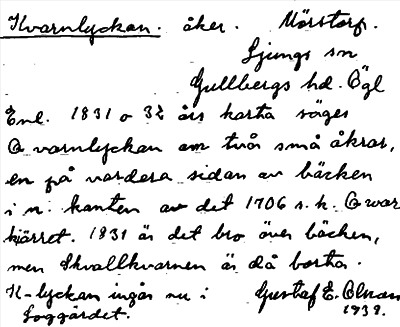 Kvarnlyckan. åker. Mörstorp.
Ljungs sn
Gullbergs hd. Ögl
Enl. 1831 o 32 års karta säges
Qvarnlyckan om två små åkrar,
en på vardera sidan av bäcken
i n. kanten av det 1706 s.k. Qwar
kjärret. 1831 är det bro över bäcken,
men Skvallkvarnen är då borta.
K-lyckan ingår nu i Gustaf E. Olsson
Loggärdet. 1939.